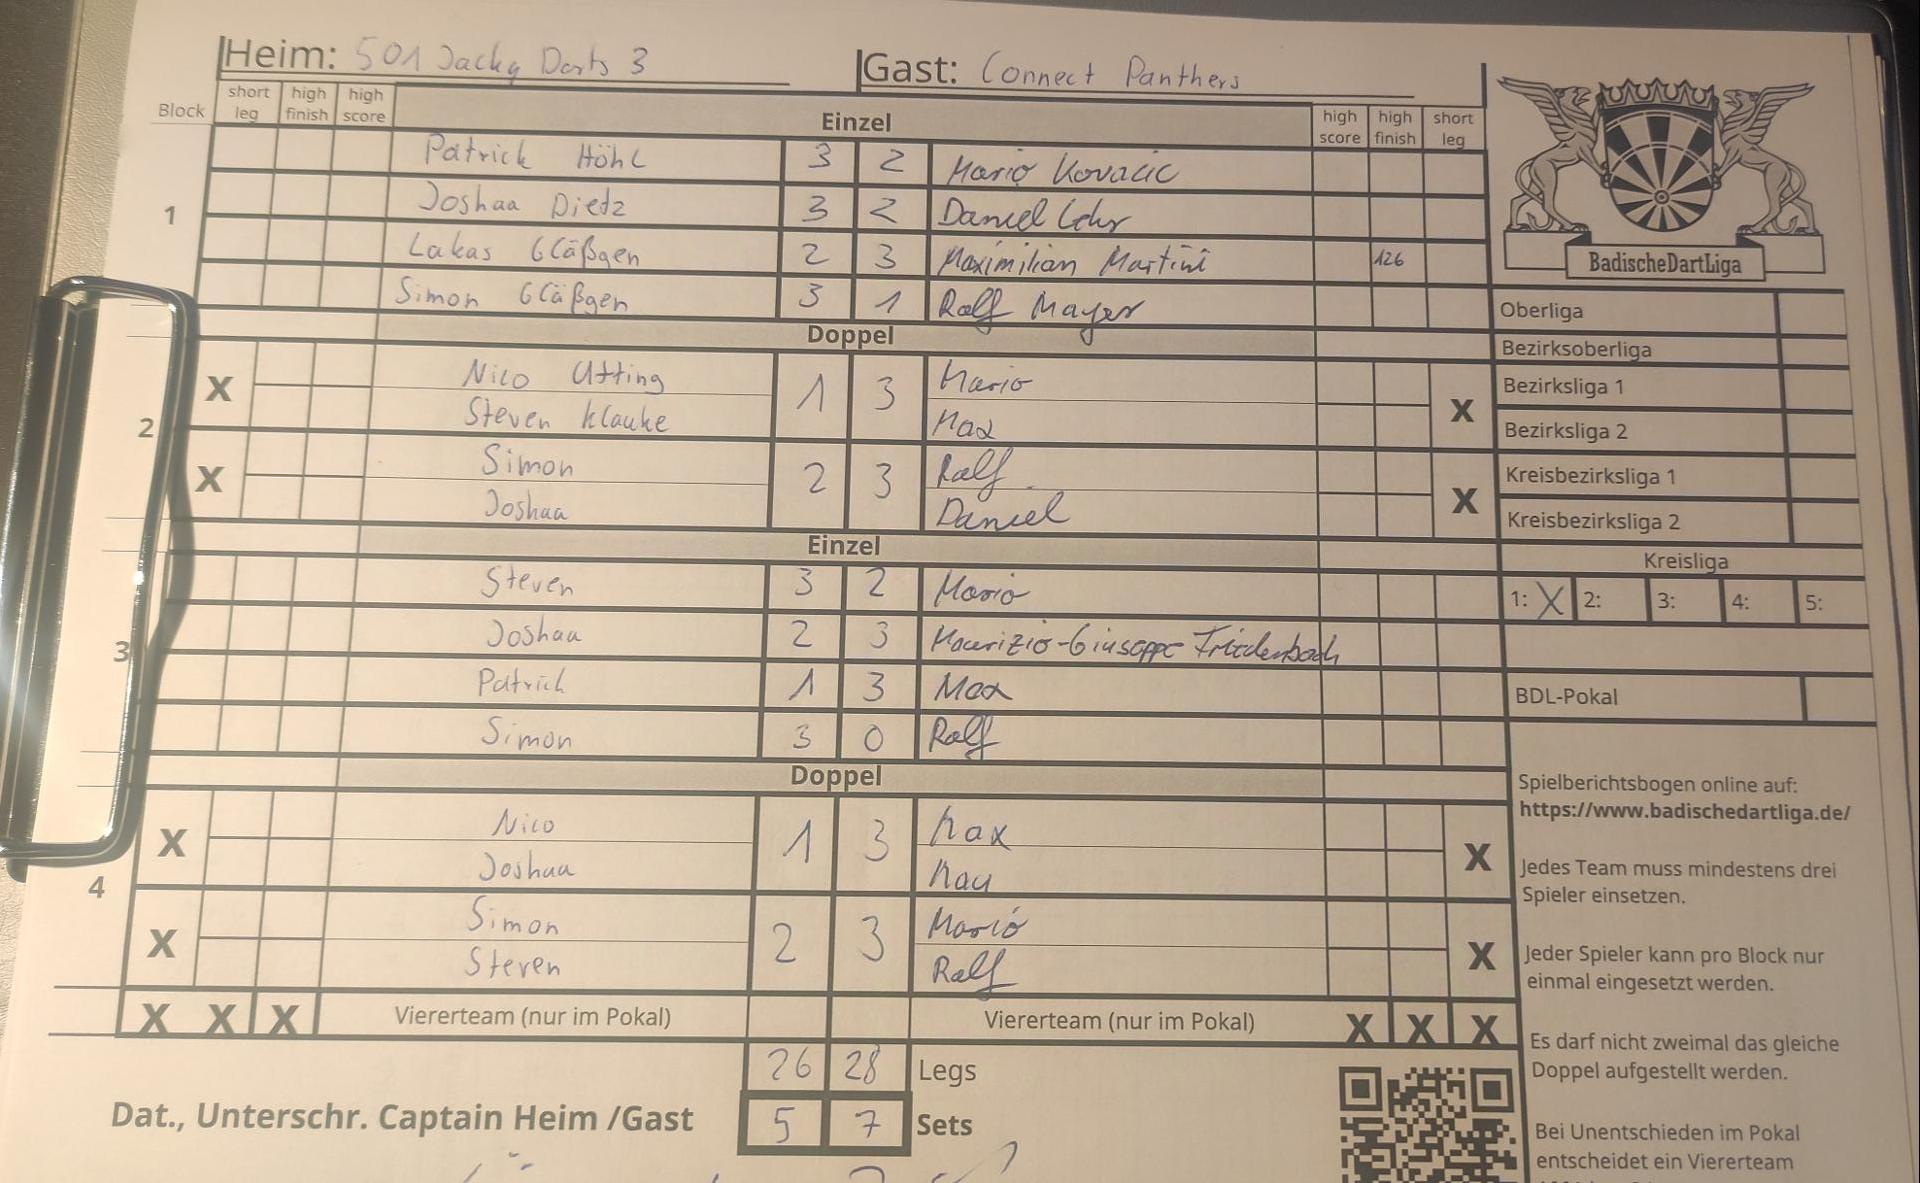 Heim: 501 Jacky Darts 3 Gast: Connect Panthers
Block short leg high finish high score Einzel high score high finish short leg
1
Patrick Höhl 3 2 Mario Kovacic
Joshua Dietz 3 2 Daniel Lehr
Lukas Gläßgen 2 3 Maximilian Martini 126
Simon Gläßgen 3 1 Ralf Mayer
BadischeDartLiga
Oberliga
Doppel
Bezirksoberliga
2
X Nico Utting 1 3 Mario X
Steven Klauke Max
Bezirksliga 1
Bezirksliga 2
X Simon 2 3 Ralf X
Joshua Daniel
Kreisbezirksliga 1
Kreisbezirksliga 2
Einzel
Kreisliga
1: X 2: 3: 4: 5:
3
Steven 3 2 Mario
Joshua 2 3 Maurizio-Giuseppe Friedenbach
Patrich 1 3 Max
Simon 3 0 Ralf
BDL-Pokal
Doppel
4
X Nico 1 3 Max X
Joshua
X Simon 2 3 Mario X
Steven Ralf
X X X Viererteam (nur im Pokal) Viererteam (nur im Pokal) X X X
26 28 Legs
5 7 Sets
Dat., Unterschr. Captain Heim /Gast
Spielberichtsbogen online auf:
https://www.badischedartliga.de/
Jedes Team muss mindestens drei
Spieler einsetzen.
Jeder Spieler kann pro Block nur
einmal eingesetzt werden.
Es darf nicht zweimal das gleiche
Doppel aufgestellt werden.
Bei Unentschieden im Pokal
entscheidet ein Viererteam